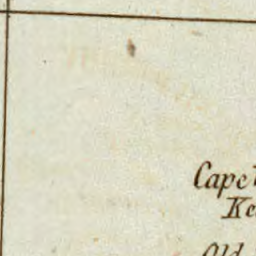 Cape
Ke
Old